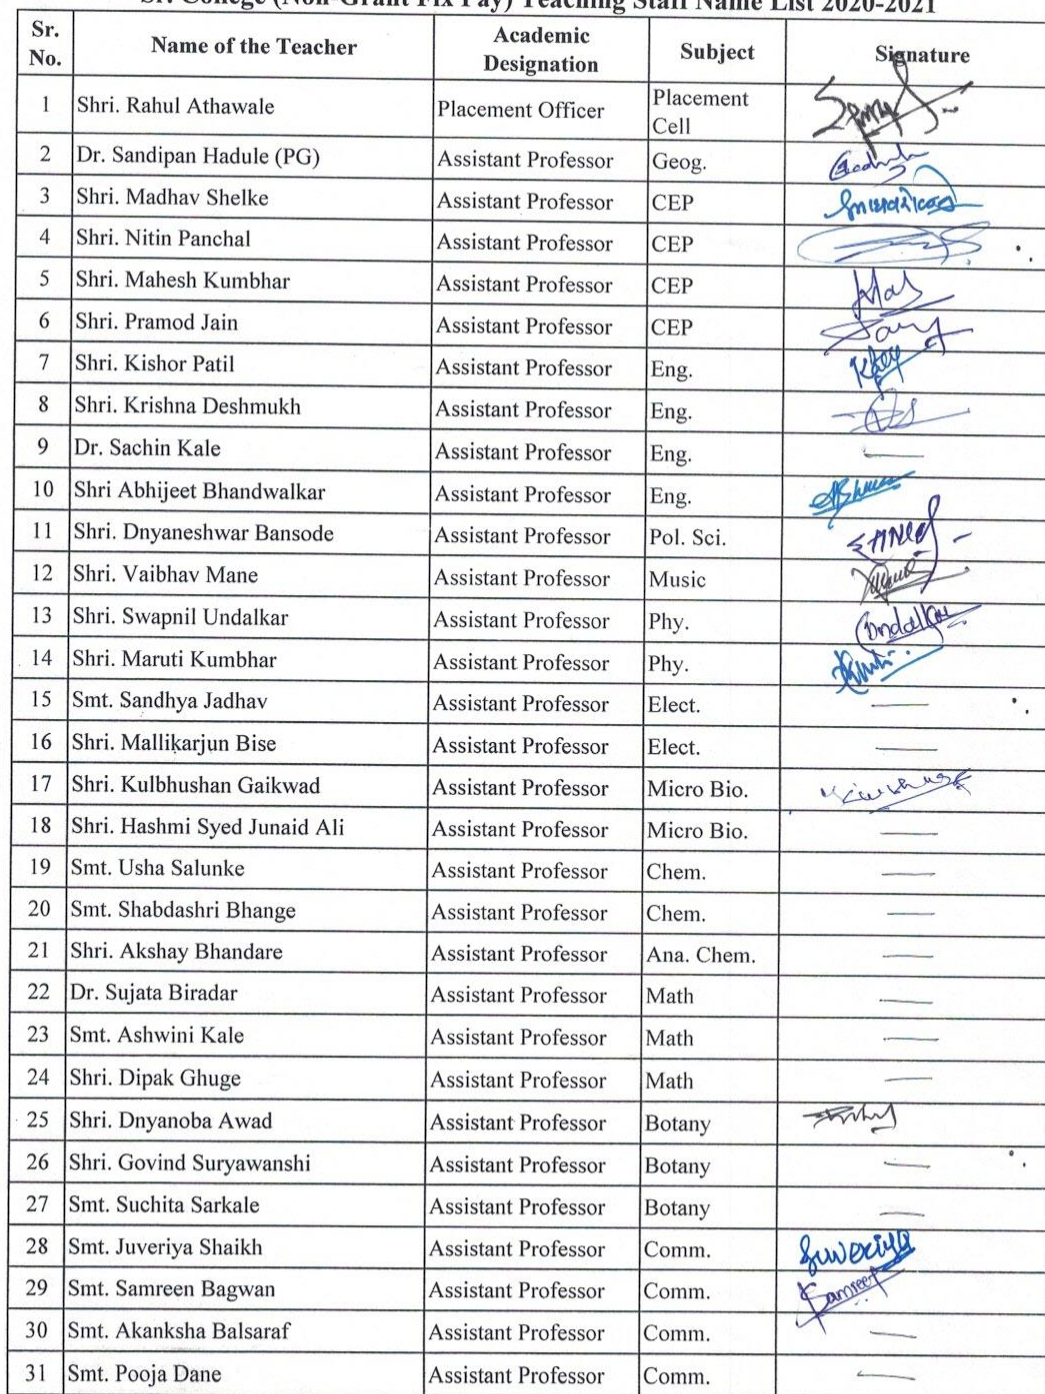 Sr. College (Non-Grant Fix Pay) Teaching Staff Name List 2020-2021
Sr. No. Name of the Teacher Academic Designation Subject Signature
1 Shri. Rahul Athawale Placement Officer Placement Cell
2 Dr. Sandipan Hadule (PG) Assistant Professor Geog.
3 Shri. Madhav Shelke Assistant Professor CEP
4 Shri. Nitin Panchal Assistant Professor CEP
5 Shri. Mahesh Kumbhar Assistant Professor CEP
6 Shri. Pramod Jain Assistant Professor CEP
7 Shri. Kishor Patil Assistant Professor Eng.
8 Shri. Krishna Deshmukh Assistant Professor Eng.
9 Dr. Sachin Kale Assistant Professor Eng.
10 Shri Abhijeet Bhandwalkar Assistant Professor Eng.
11 Shri. Dnyaneshwar Bansode Assistant Professor Pol. Sci.
12 Shri. Vaibhav Mane Assistant Professor Music
13 Shri. Swapnil Undalkar Assistant Professor Phy. Undalkar
14 Shri. Maruti Kumbhar Assistant Professor Phy.
15 Smt. Sandhya Jadhav Assistant Professor Elect.
16 Shri. Mallikarjun Bise Assistant Professor Elect.
17 Shri. Kulbhushan Gaikwad Assistant Professor Micro Bio.
18 Shri. Hashmi Syed Junaid Ali Assistant Professor Micro Bio.
19 Smt. Usha Salunke Assistant Professor Chem.
20 Smt. Shabdashri Bhange Assistant Professor Chem.
21 Shri. Akshay Bhandare Assistant Professor Ana. Chem.
22 Dr. Sujata Biradar Assistant Professor Math
23 Smt. Ashwini Kale Assistant Professor Math
24 Shri. Dipak Ghuge Assistant Professor Math
25 Shri. Dnyanoba Awad Assistant Professor Botany
26 Shri. Govind Suryawanshi Assistant Professor Botany
27 Smt. Suchita Sarkale Assistant Professor Botany
28 Smt. Juveriya Shaikh Assistant Professor Comm. Juveriya
29 Smt. Samreen Bagwan Assistant Professor Comm.
30 Smt. Akanksha Balsaraf Assistant Professor Comm.
31 Smt. Pooja Dane Assistant Professor Comm.